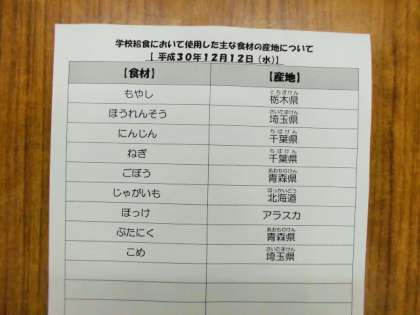 学校給食において使用した主な食材の産地について
【 平成30年12月12日（水）】
【食材】 【産地】
もやし 栃木県
とちぎけん
ほうれんそう 埼玉県
さいたまけん
にんじん 千葉県
ちばけん
ねぎ 千葉県
ちばけん
ごぼう 青森県
あおもりけん
じゃがいも 北海道
ほっかいどう
ほっけ アラスカ
ぶたにく 青森県
あおもりけん
こめ 埼玉県
さいたまけん